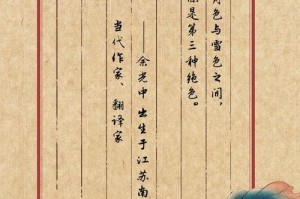 月色与雪色之间，
你是第三种绝色。
——余光中 出生于江苏南
当代作家、翻译家